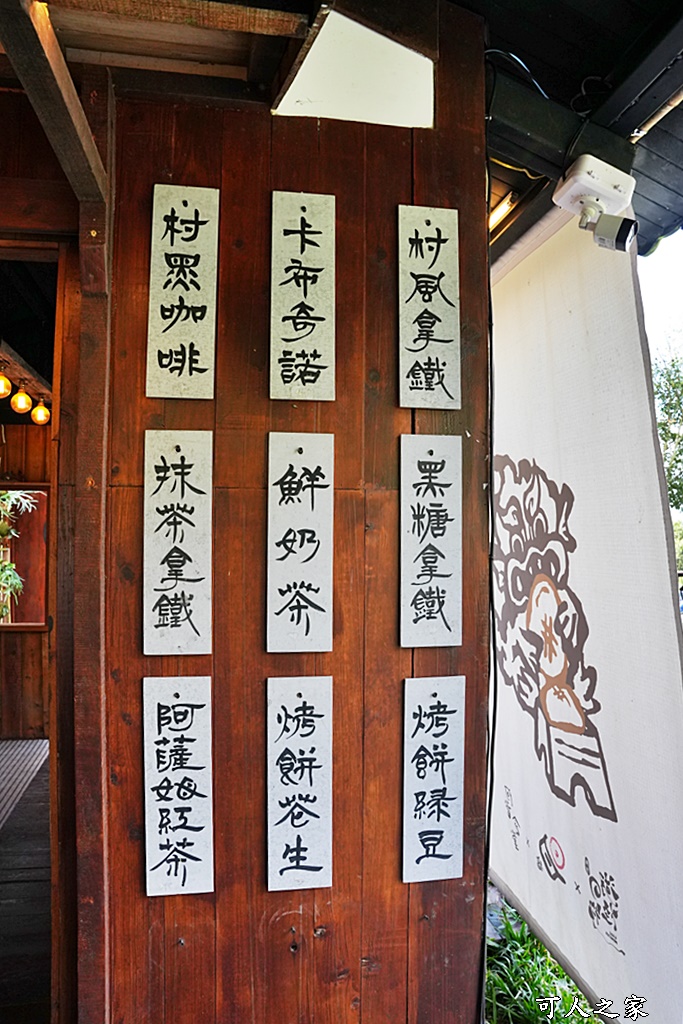 村風拿鐵
卡布奇諾
村黑咖啡
黑糖拿鐵
鮮奶茶
抹茶拿鐵
烤餅綠豆
烤餅花生
阿薩姆紅茶
可人之家